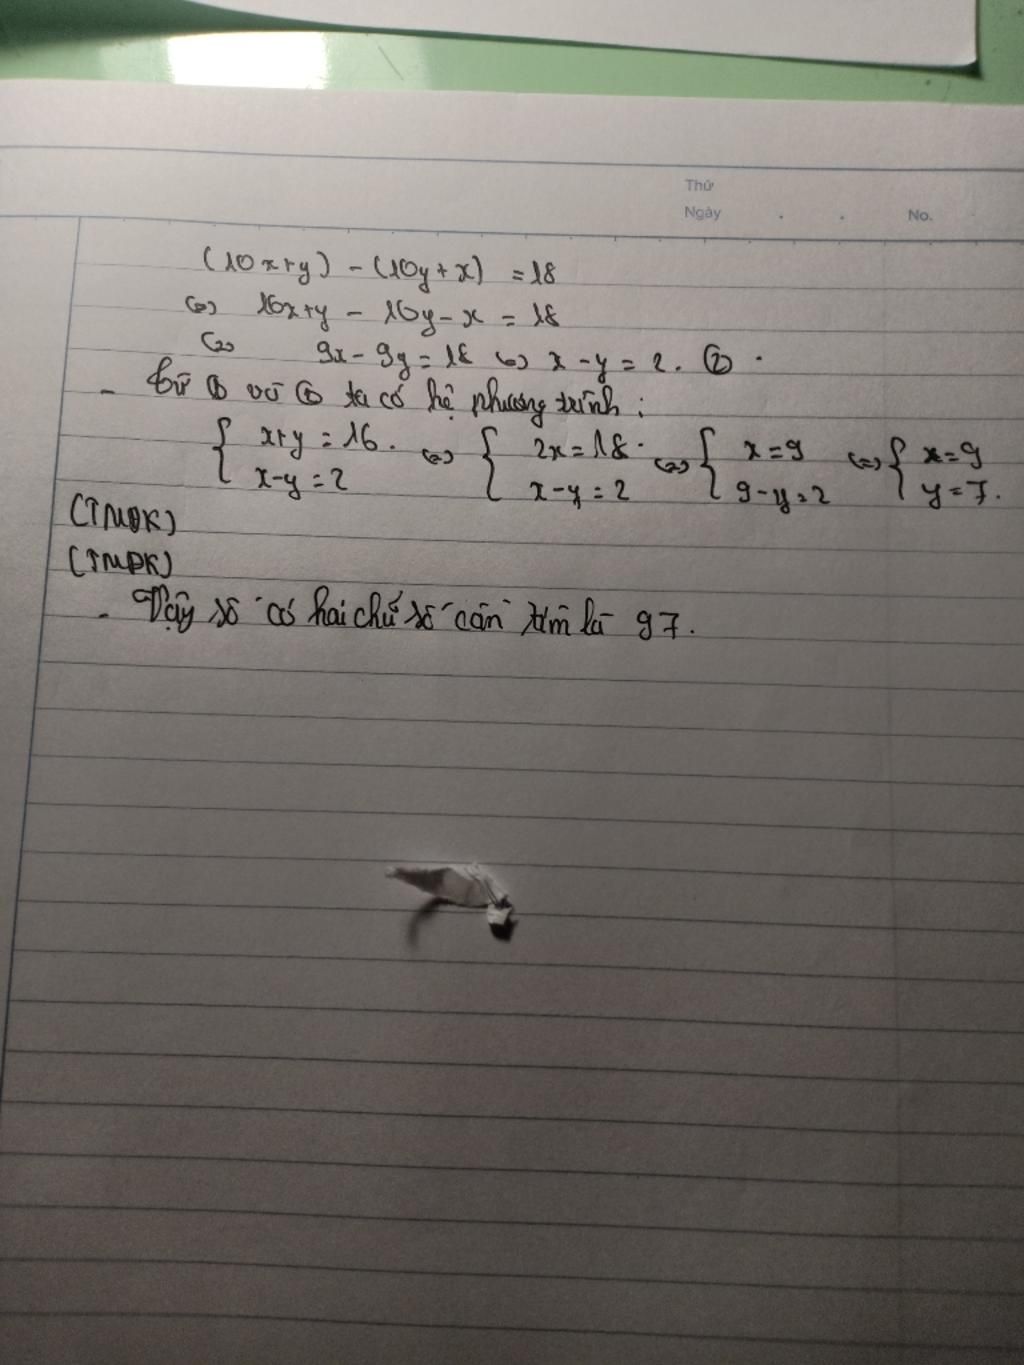 Thứ
Ngày . . No.
(10x+y) - (10y+x) = 18
<=> 10x+y - 10y-x = 18
<=> 9x-9y = 18 <=> x-y = 2. ②.
- Từ ① và ② ta có hệ phương trình:
{ x+y = 16. <=> { 2x = 18. <=> { x = 9 <=> { x = 9
x-y = 2 x-y = 2 9-y = 2 y = 7.
(TMĐK)
(TMĐK)
- Vậy số có hai chữ số cần tìm là 97.